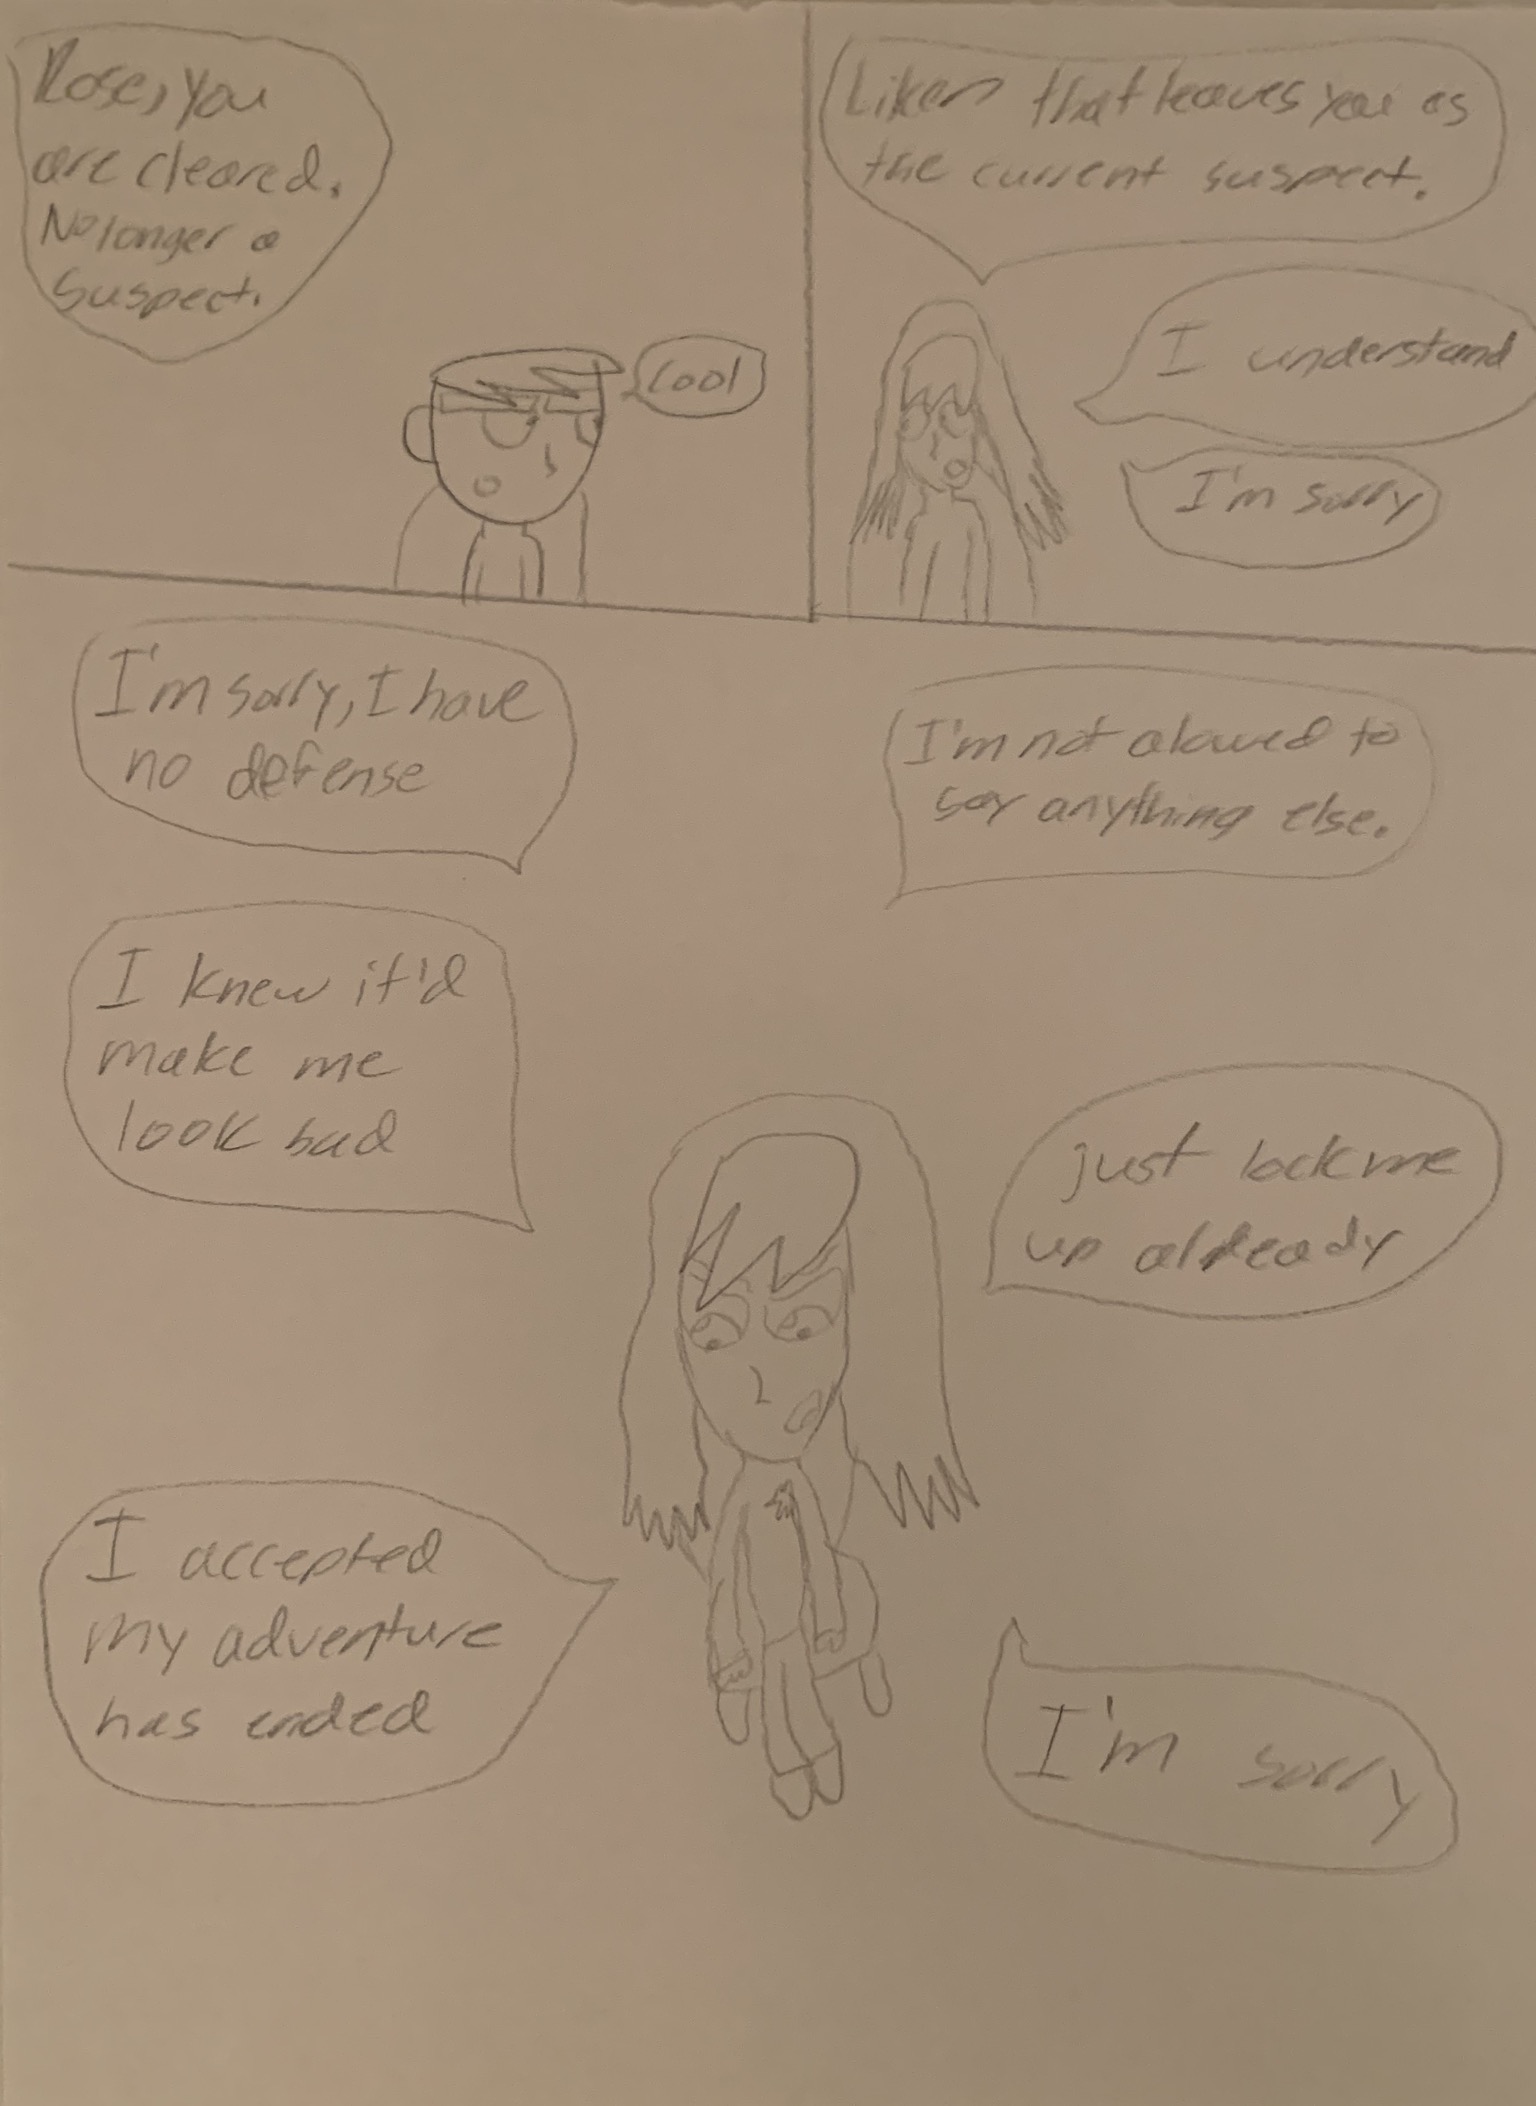 Rose, you
are cleared.
No longer a
suspect.
Cool
Liken that leaves you as
the current suspect.
I understand
I'm sorry
I'm sorry, I have
no defense
I'm not alowed to
say anything else.
I knew it'd
make me
look bad
just lock me
up already
I accepted
my adventure
has ended
I'm sorry